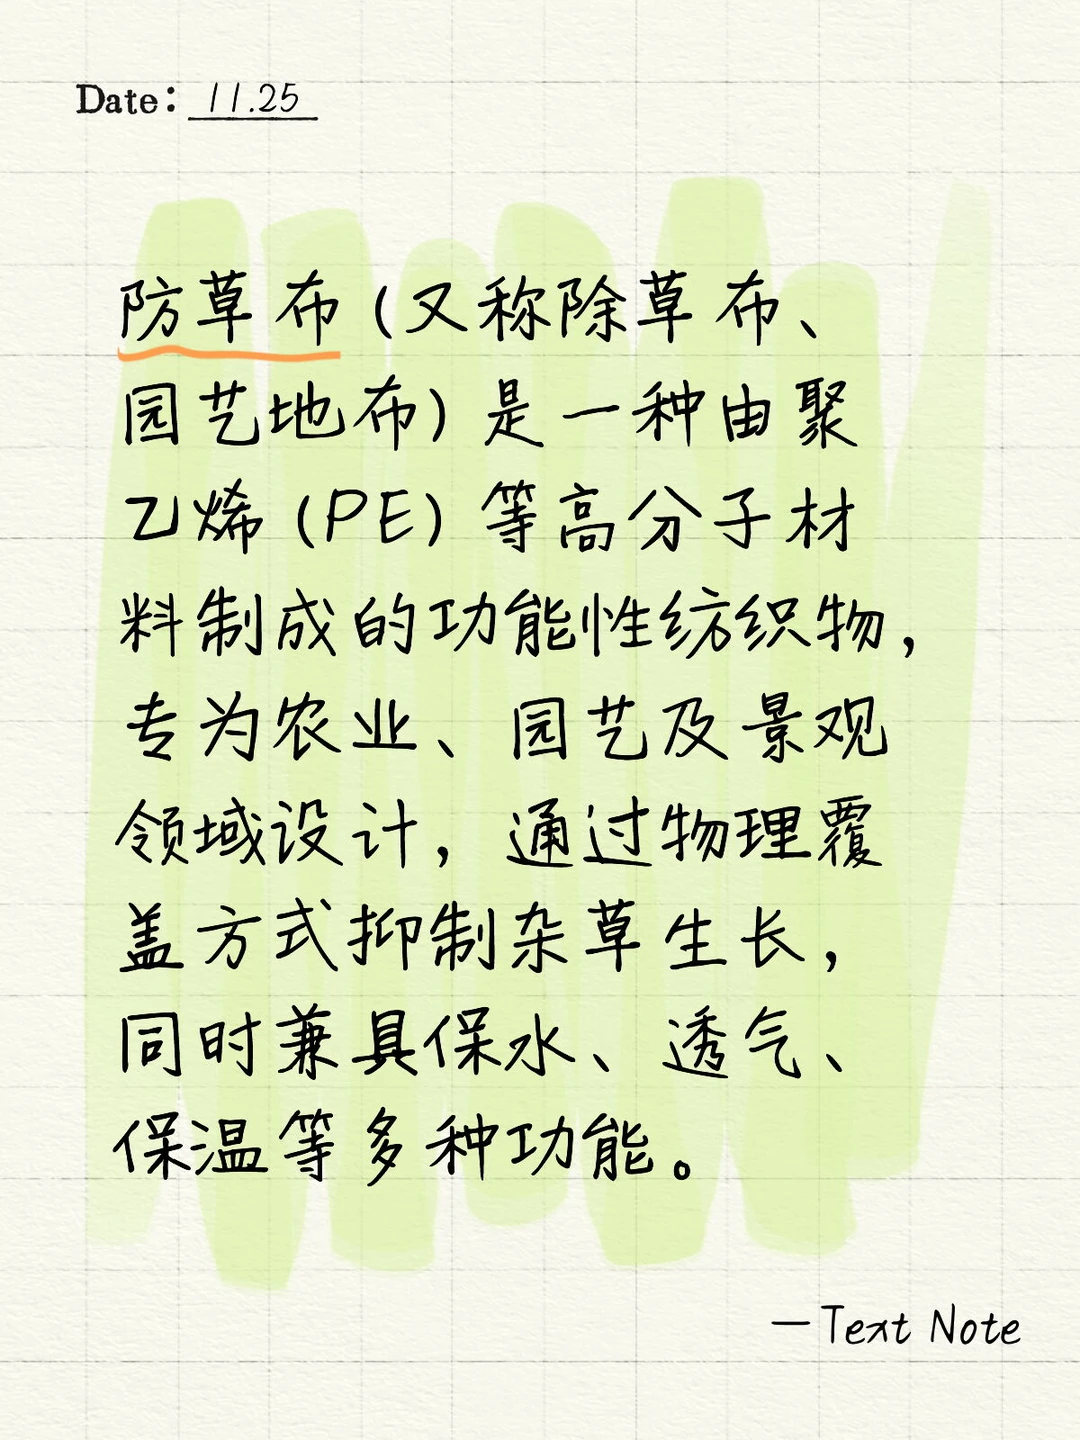 Date: 11.25
防草布(又称除草布、
园艺地布)是一种由聚
乙烯(PE)等高分子材
料制成的功能性纺织物,
专为农业、园艺及景观
领域设计,通过物理覆
盖方式抑制杂草生长,
同时兼具保水、透气、
保温等多种功能。
—Text Note